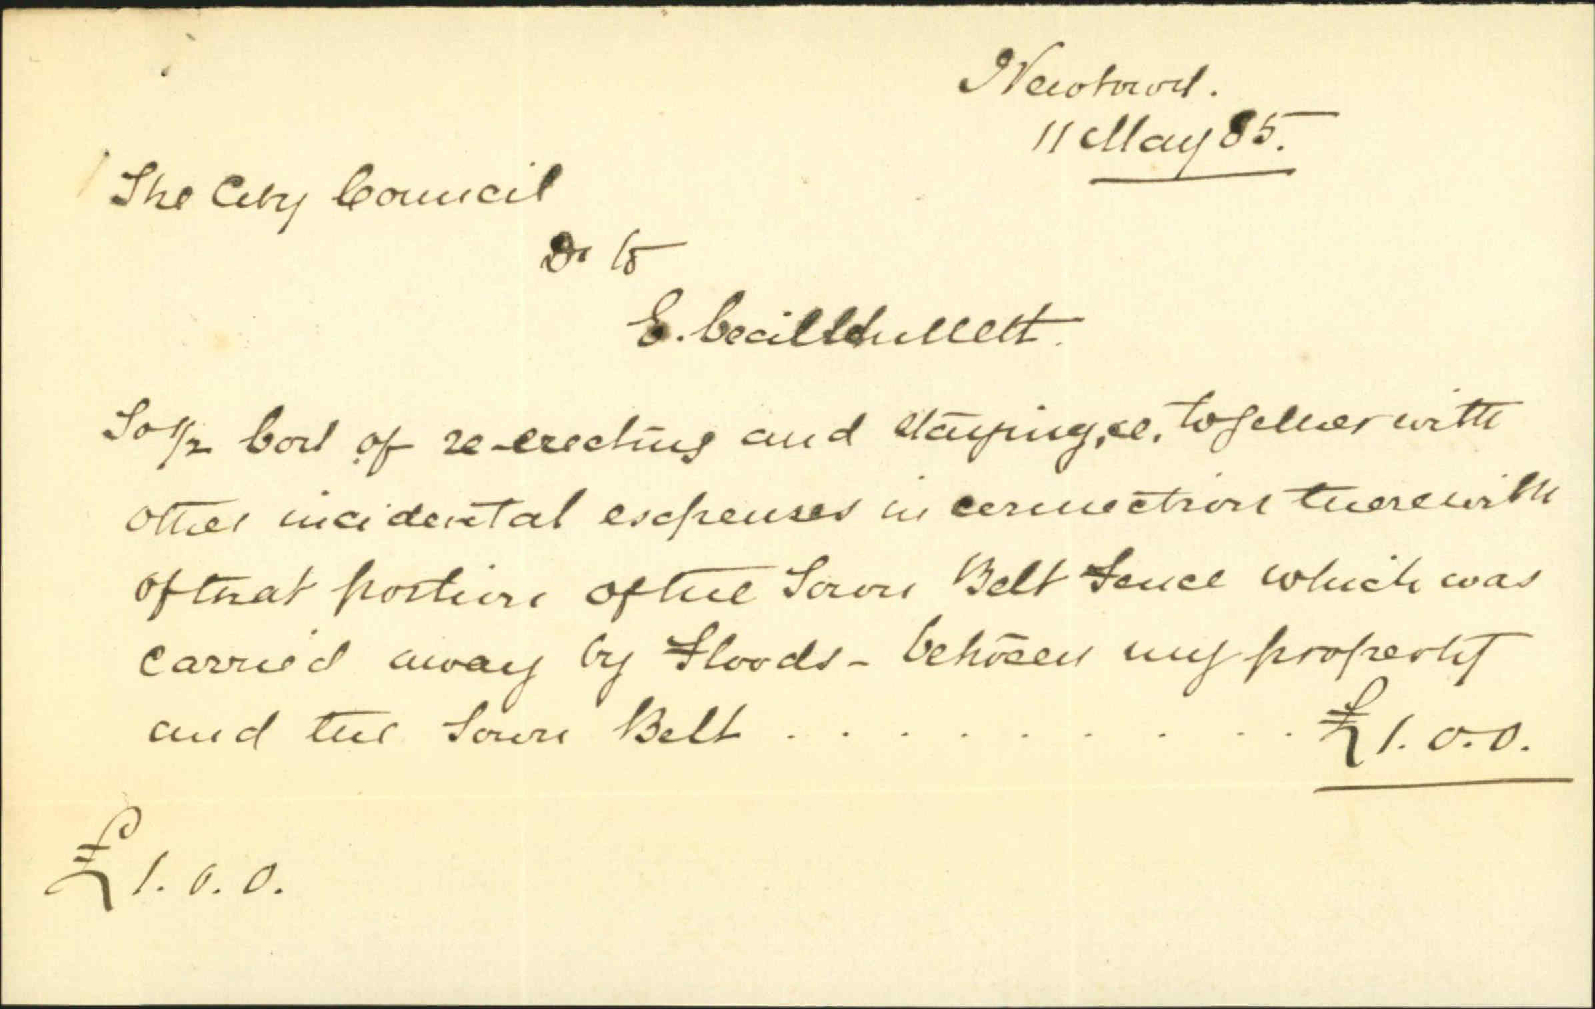 Newtown.
11 May 85.
The City Council
Dr to
E. Cecil
To 1/2 Cost of re-erecting and staying, &c, together with
other incidental expenses in connection therewith
of that portion of the Town Belt Fence which was
carried away by Floods - between my property
and the Town Belt . . . . . . . . . . £1.0.0.
£1.0.0.